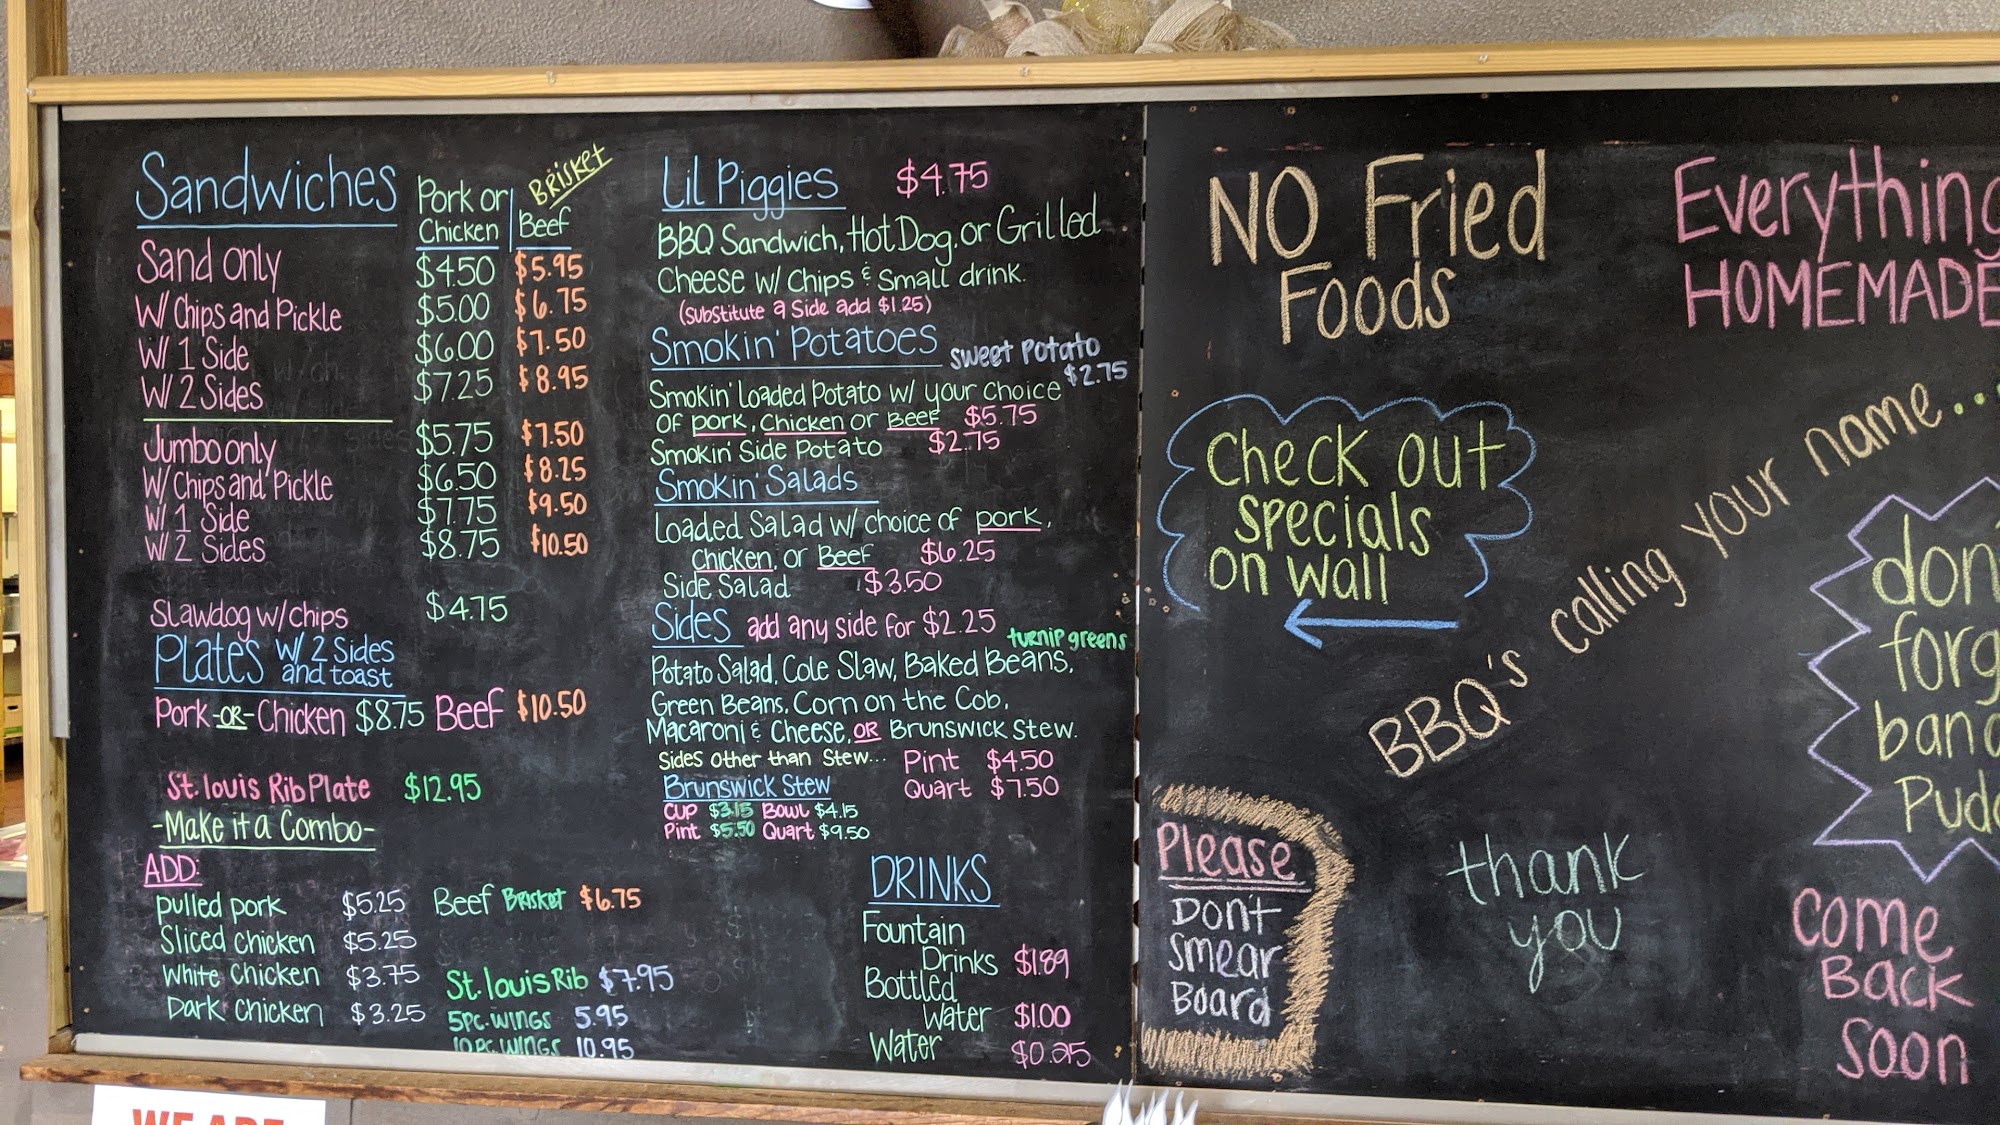 Sandwiches Pork or Chicken Beef Brisket
Sand only $4.50 $5.95
W/ Chips and Pickle $5.00 $6.75
W/ 1 Side $6.00 $7.50
W/ 2 Sides $7.25 $8.95
Jumbo only $5.75 $7.50
W/ Chips and Pickle $6.50 $8.25
W/ 1 Side $7.75 $9.50
W/ 2 Sides $8.75 $10.50
Slawdog w/chips $4.75
Plates w/ 2 Sides
and toast
Pork -OR- Chicken $8.75 Beef $10.50
St. Louis Rib Plate $12.95
-Make it a Combo-
ADD:
pulled pork $5.25 Beef Brisket $6.75
Sliced Chicken $5.25
White Chicken $3.75 St. Louis Rib $7.95
Dark Chicken $3.25 5pc. Wings 5.95
10 pc. Wings 10.95
Lil Piggies $4.75
BBQ Sandwich, Hot Dog, or Grilled
Cheese w/ Chips & Small drink.
(substitute a Side add $1.25)
Smokin' Potatoes sweet Potato
$2.75
Smokin' Loaded Potato w/ your choice
of pork, Chicken or Beef $5.75
Smokin' Side Potato $2.75
Smokin' Salads
Loaded Salad w/ choice of pork,
Chicken, or Beef $6.25
Side Salad $3.50
Sides add any side for $2.25
turnip greens
Potato Salad, Cole Slaw, Baked Beans,
Green Beans, Corn on the Cob,
Macaroni & Cheese, OR Brunswick Stew.
Sides other than Stew... Pint $4.50
Quart $7.50
Brunswick Stew
Cup $3.15 Bowl $4.15
Pint $5.50 Quart $9.50
DRINKS
Fountain
Drinks $1.89
Bottled
Water $1.00
Water $0.25
NO Fried
Foods
Everything
HOMEMADE
Check out
specials
on wall
BBQ's calling your name...
don'
forg
bana
Pudd
Please
Dont
smear
Board
thank
you
Come
Back
Soon
WE ARE